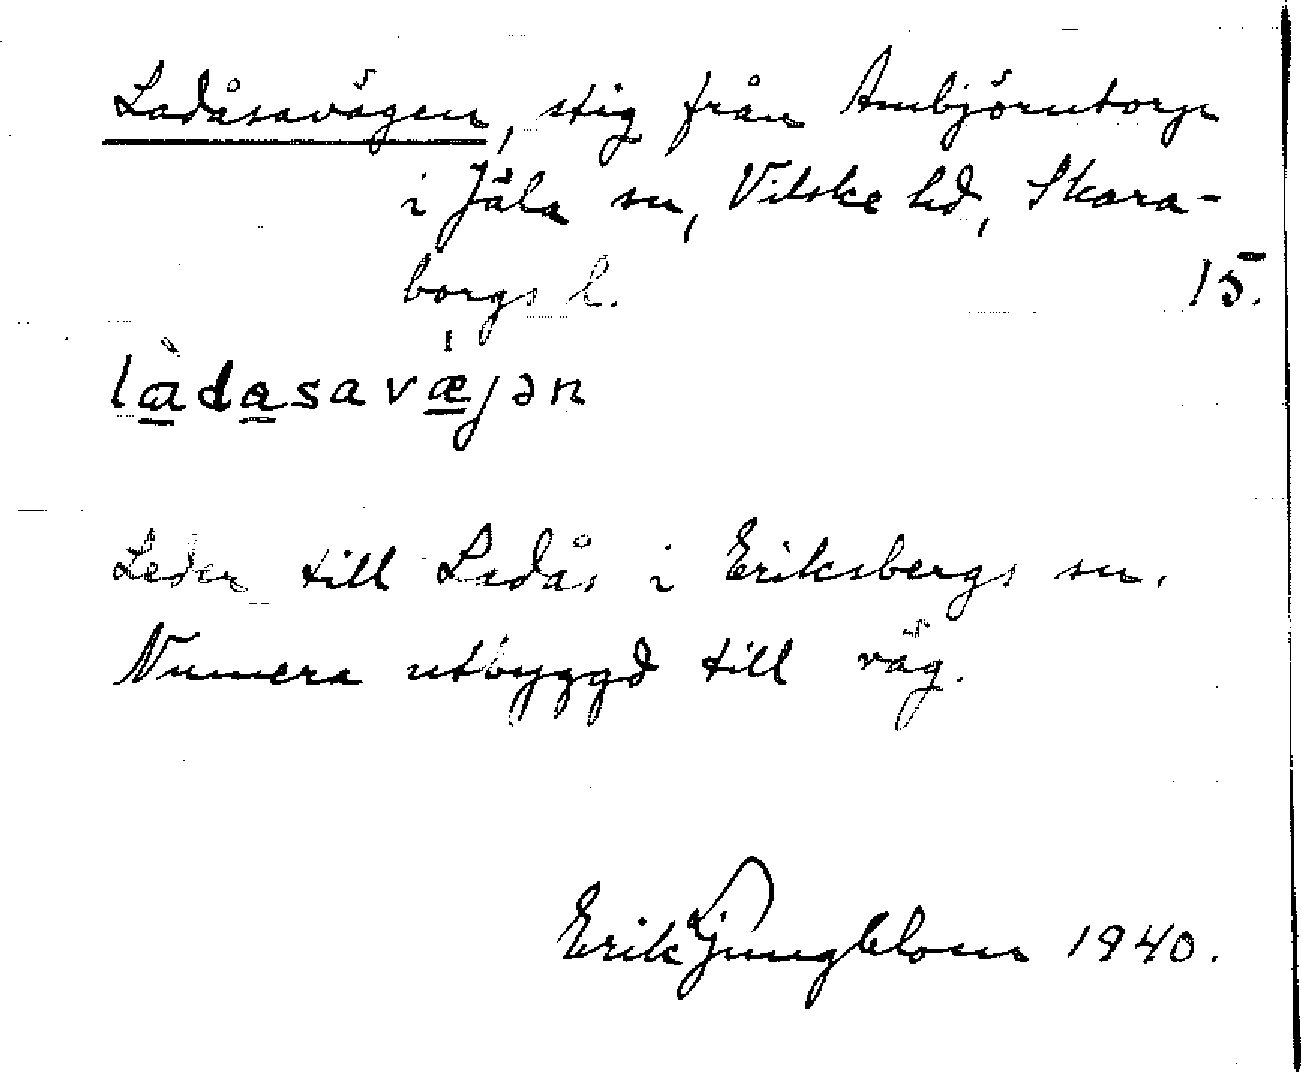 Ladåsavägen, stig från Ambjörntorp
i Jäla sn, Vilske hd, Skara-
borgs l.
15.
làdasavæ̍jən
Leder till Ladås i Eriksbergs sn.
Numera utbyggd till väg.
Erik Ljungblom 1940.